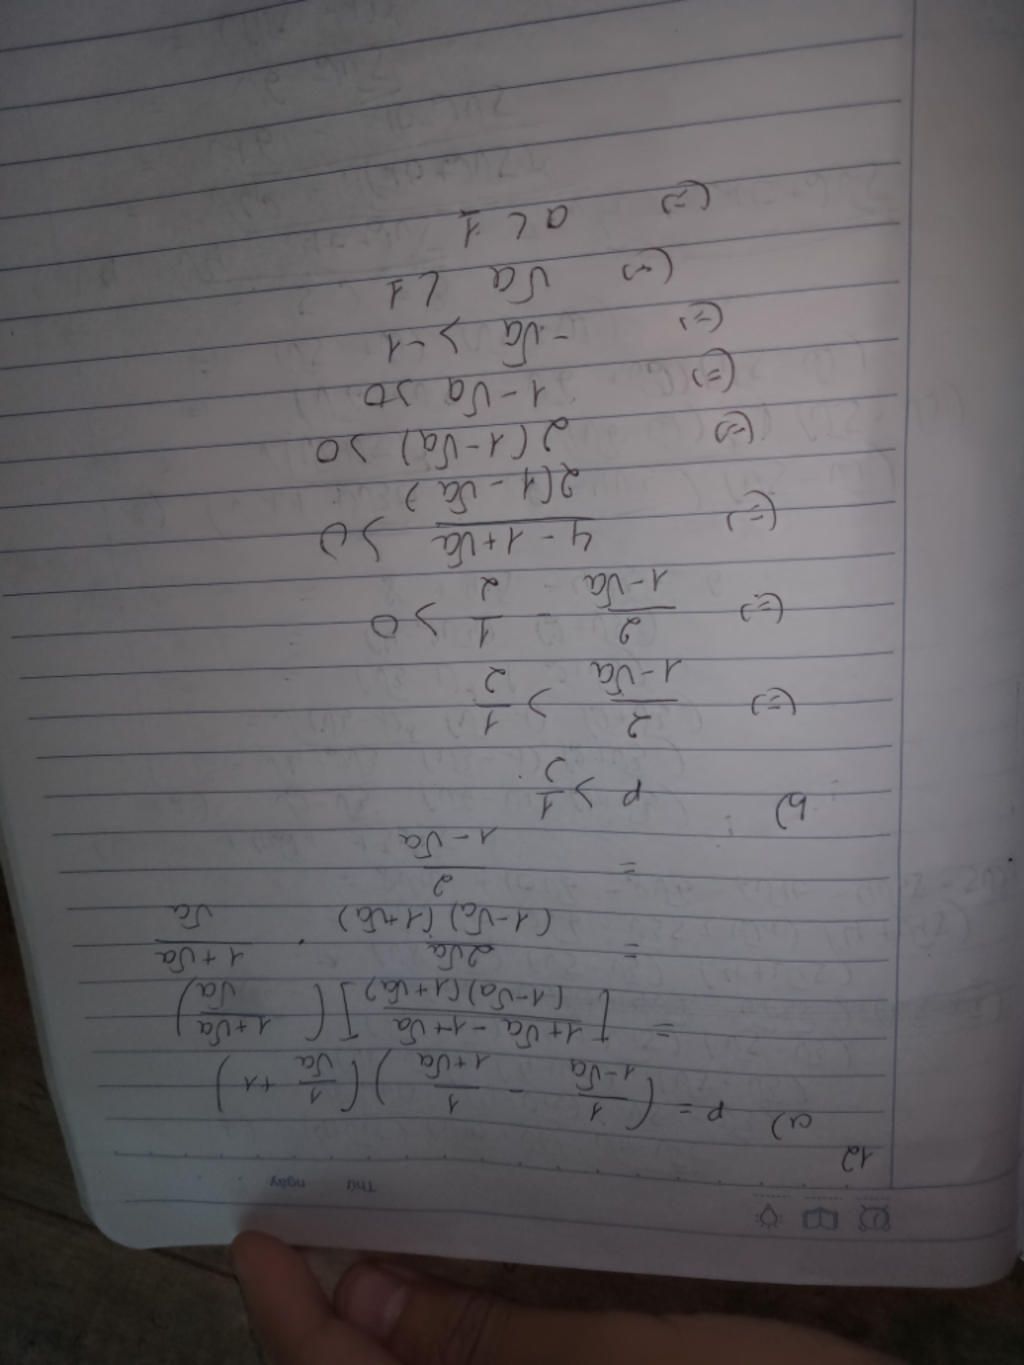 Thứ ngày
12
a) P = (1/(1-√a) - 1/(1+√a)) (1/√a + 1)
= [(1+√a - 1+√a)/((1-√a)(1+√a))] ((1+√a)/√a)
= 2√a/((1-√a)(1+√a)) . (1+√a)/√a
= 2/(1-√a)
b) P > 1/2
(=) 2/(1-√a) > 1/2
(=) 2/(1-√a) - 1/2 > 0
(=) (4 - 1+√a)/(2(1-√a)) > 0
(=) 2(1-√a) > 0
(=) 1-√a > 0
(=) -√a > -1
(=) √a < 1
(=) a < 1